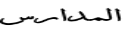 المدارس